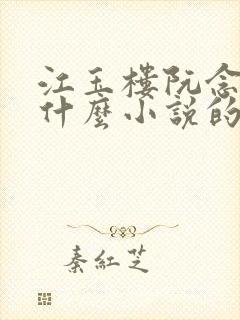 江玉樓阮念
什麼小說的
秦紅芝